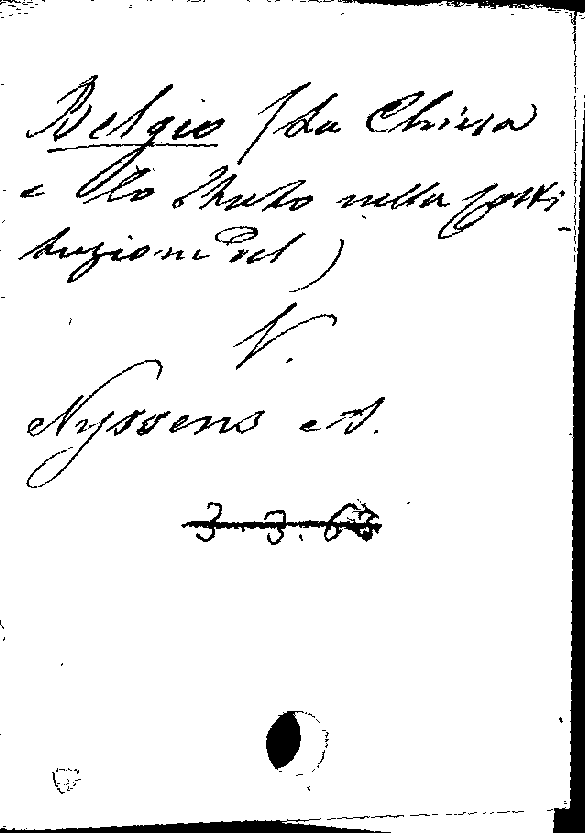 Belgio (La Chiesa
e lo Stato nella Costi-
tuzione del)
V.
Nyssens A.
3. 3. 63